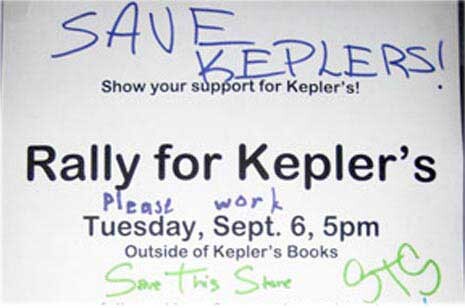 SAVE
KEPLERS!
Show your support for Kepler's!
Rally for Kepler's
Please work
Tuesday, Sept. 6, 5pm
Outside of Kepler's Books
Save This Store